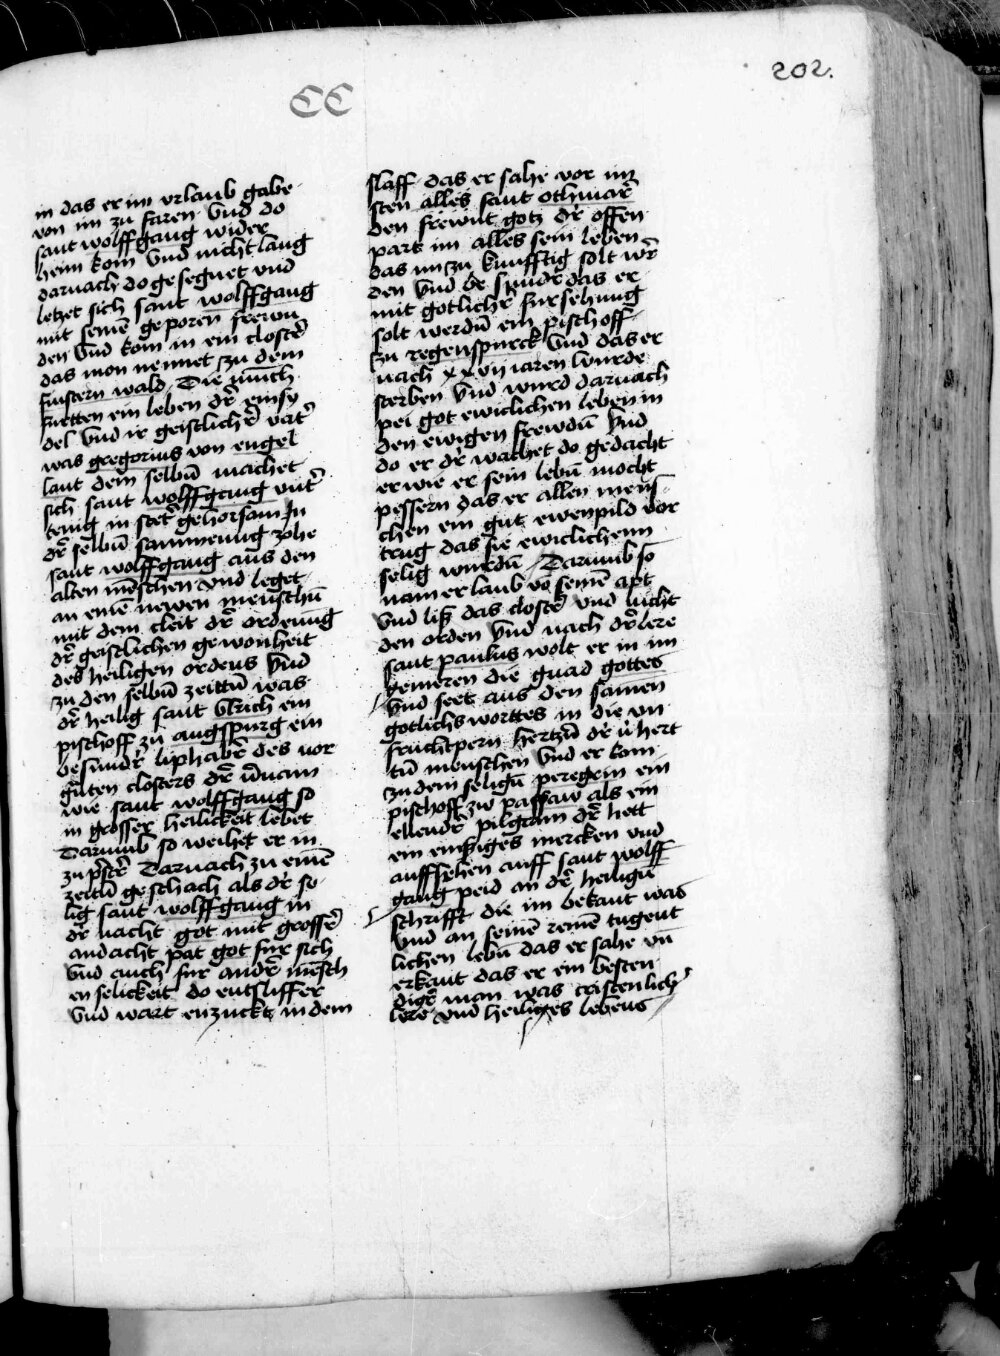 202.
CC
in das er im vrlaub gabe
von im zu faren Vnd do
sant wolffgang wider
heim kom Vnd nicht lang
darnach do gesegnet vnd
letzet sich sant wolffgang
mit seinē geporen frewn
den Vnd kom in ein closter̄
das mon nennet zu dem
finstern wald Die münch
furtten ein leben dr̄ einsy
del Vnd ir geistlichr̄ vatr̄
was gregorius von engel
lant dem selbn̄ machet
sich sant wolffgang vntr̄
tenig in stetr̄ gehorsam In
dr̄ selbn̄ sammenung zohe
sant wolffgang aus den
alten mēschen vnd leget
an einē newen menschn̄
mit dem cleit dr̄ ordenūg
dr̄ geistlichen gewonheit
des heiligen ordens Vnd
zu den selbn̄ zeittn̄ was
dr̄ heilig sant Vlrich ein
pischoff zu augspurg ein
besundr̄ liphabr̄ des vor
gn̄ten closters dr̄ v̄nam
wie sant wolffgang so
in grosser heilickeit lebet
Darumb so weihet er in
zu pr̄str̄ Darnach zu einē
zeittn̄ geschach als dr̄ se
lig sant wolffgang in
dr̄ nacht got mit grosser̄
andacht pat got fur sich
Vnd auch fur andr̄ mēsch
en selickeit do entsliffer
Vnd wart enzuckt in dem
slaff das er sahe vor im
sten alles sant othmar̄
den frewnt gotz dr̄ offen
part im alles sein leben
das im zu kunfftig solt wr̄
den Vnd be sundr̄ das er
mit gotlichr̄ fursehung
solt werdn̄ ein pischoff
zu regenspurck Vnd das er
nach xxvij iaren wurde
sterben Vnd wurd darnach
pei got ewiclichen leben in
den ewigen frewdn̄ Vnd
do er dr̄ wachet do gedacht
er wie er sein lebn̄ mocht
pessern das er allen mens
chen ein gut ewenpild vor
trug das sie ewiclichenn
selig wurdn̄ Darumb so
nam er laub vō seinē apt
Vnd liß das closter̄ vnd nicht
den orden Vnd nach dr̄ lere
sant paulus wolt er in im
gemeren die gnad gottes
Vnd seet aus den samen
gotlichs worttes in die vn
fruchtpern hertzn̄ dr̄ v̄hert
tn̄ menschen Vnd er kom
zu dem selign̄ peregrin ein
pischoff zw passaw als ein
ellendr̄ pilgram dr̄ hett
ein emßiges mercken vnd
auffsehen auff sant wolff
gang peid an dr̄ heilign̄
schrifft die im bekant was
Vnd an seinē reinē tugent
lichen lebn̄ das er sahe vn̄
erkant das er ein besten
digr̄ man was cristenlichr̄
lere vnd heiliges lebens